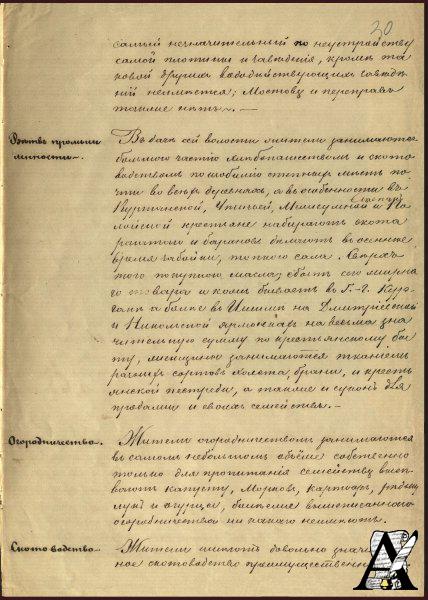 30
самый незначительный по неустройству
самой плотины и заведения, кроме та
ковой других вододействующих заведе
ний неимеется; Мостов и переправ
также нет. —
Ветвь промыш
ленности.
В дачах сей волости жители занимаются
большею частию хлебопашеством и ското
водством по изобилию степных мест по
чти во всех
а в особенности в
Куртанской,
и
крестьяне набирают скота
рогатого и баранов
в осеннее
время
топного сала. Сверх
того покупного масла, сбыт сего
го товара и кож бывает в Г-д. Кур
гане а более в Ишиме на Дмитриевской
и Никольской ярмонках на весьма зна
чительную сумму по крестьянскому бы
ту, женщины занимаются тканием
разных сортов холста,
и кресть
янской пестряди, а также и сукон для
продажи и своих семейств. —
Огородничество.
Жители огородничеством занимаются
в самом небольшом объёме собственно
только для пропитания семейств
капусту, Морковь, картофель, редьку
лук и огурцы, более вышеписанного
огородничества ни какого неимеют.
Скотоводство
Жители имеют довольно значи
ное скотоводство преимущественно